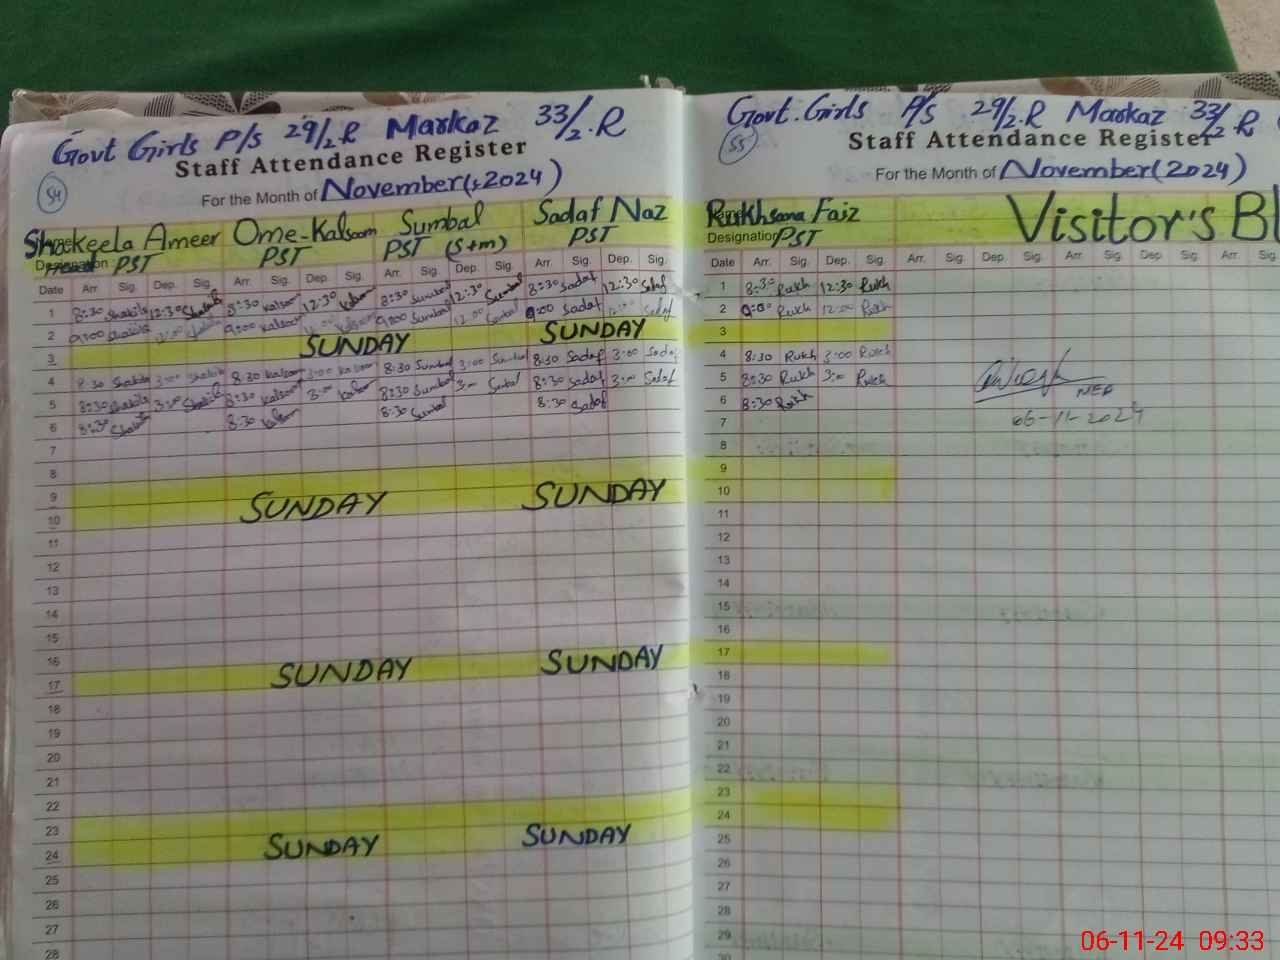 Govt Girls P/S 29/2.R Markaz 33/2.R
Staff Attendance Register
54
For the Month of November (2024)
Shakeela Ameer Ome-Kalsoom Sumbal Sadaf Naz
Designation PST PST PST (S+m) PST
Date Arr. Sig. Dep. Sig. Arr. Sig. Dep. Sig. Arr. Sig. Dep. Sig. Arr. Sig. Dep. Sig.
1 8:30 Shakila 12:30 Shakila 8:30 Kalsoom 12:30 Kalsoom 8:30 Sumbal 12:30 Sumbal 8:30 Sadaf 12:30 Sadaf
2 9:00 Shakila 12:00 Shakila 9:00 Kalsoom 12:00 Kalsoom 9:00 Sumbal 12:00 Sumbal 9:00 Sadaf 12:00 Sadaf
3 SUNDAY SUNDAY
4 8:30 Shakila 3:00 Shakila 8:30 Kalsoom 3:00 Kalsoom 8:30 Sumbal 3:00 Sumbal 8:30 Sadaf 3:00 Sadaf
5 8:30 Shakila 3:00 Shakila 8:30 Kalsoom 3:00 Kalsoom 8:30 Sumbal 3:00 Sumbal 8:30 Sadaf 3:00 Sadaf
6 8:30 Shakila 8:30 Kalsoom 8:30 Sumbal 8:30 Sadaf
7
8
9
10 SUNDAY SUNDAY
11
12
13
14
15
16
17 SUNDAY SUNDAY
18
19
20
21
22
23
24 SUNDAY SUNDAY
25
26
27
28
Govt. Girls P/S 29/2.R Markaz 33/2.R
55
Staff Attendance Register
For the Month of November (2024)
Rukhsana Faiz Visitor's Bl
Designation PST
Date Arr. Sig. Dep. Sig. Arr. Sig. Dep. Sig. Arr. Sig. Dep. Sig. Arr. Sig.
1 8:30 Rukh 12:30 Rukh
2 9:00 Rukh 12:00 Rukh
3
4 8:30 Rukh 3:00 Rukh
5 8:30 Rukh 3:00 Rukh
6 8:30 Rukh
7 06-11-2024
8
9
10
11
12
13
14
15
16
17
18
19
20
21
22
23
24
25
26
27
28
29
30
06-11-24 09:33